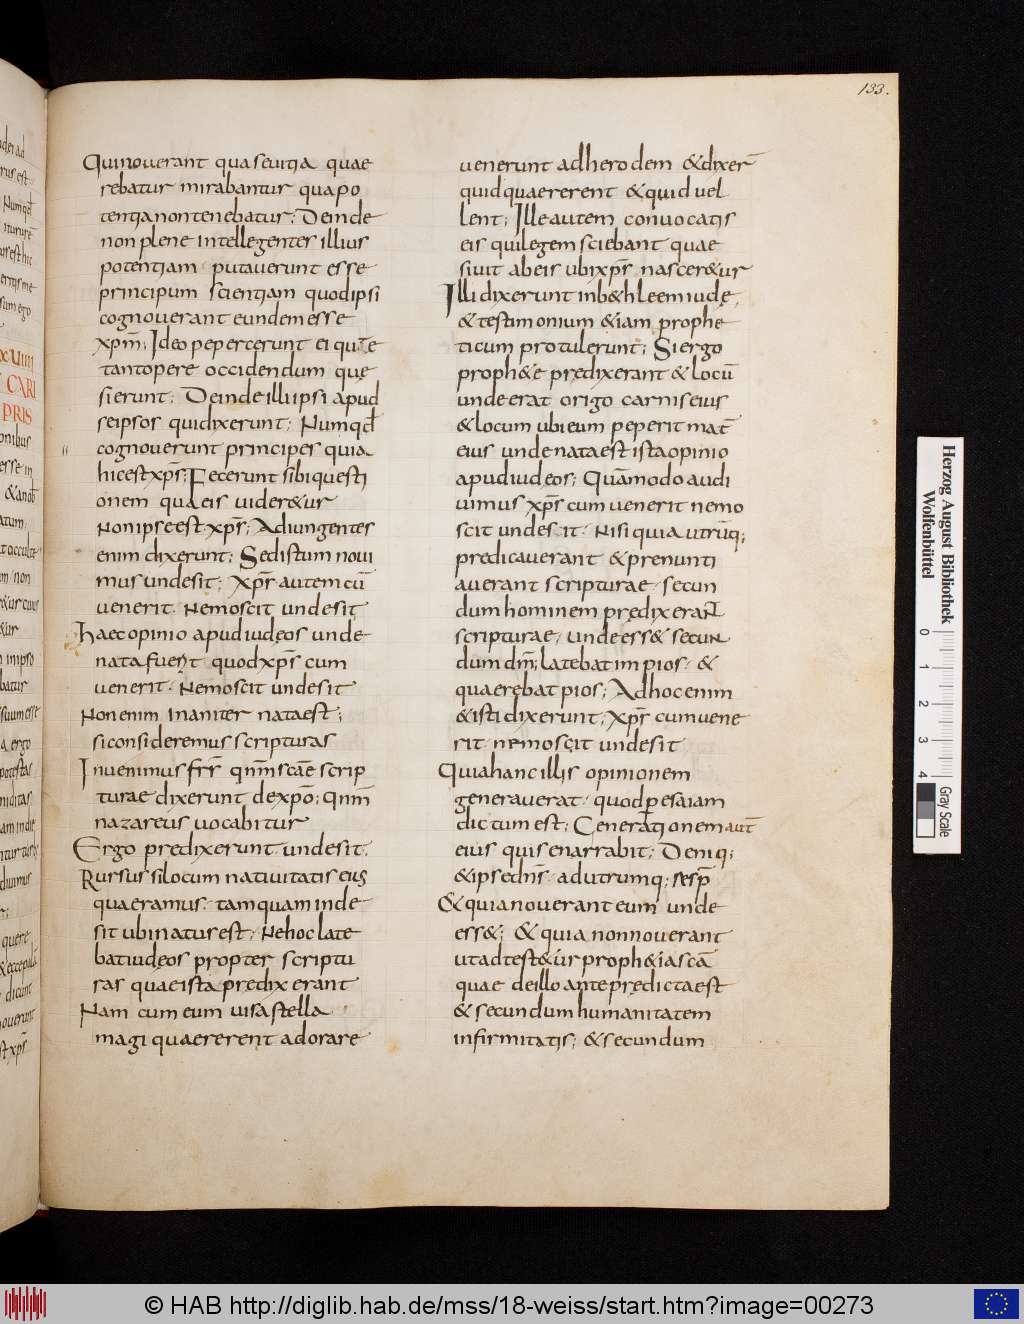 133.
Quinouerant qua seuitia quae
rebatur mirabantur qua po
tentia non tenebatur; Deinde
non plene intellegenter illius
potentiam putauerunt esse
principum scientiam quod ipsi
cognouerant eundem esse
xp̄m; Ideo pepercerunt ei que
tantopere occidendum quę
sierunt; Deinde illi ipsi apud
seipsos quidixerunt; Numqđ
cognouerunt principes quia
hic est xp̄s; Fecerunt sibi questi
onem qua eis uider&ur
Non ipse est xp̄s; Adiungentes
enim dixerunt; Sed istum noui
mus unde sit; Xp̄s autem cū
uenerit. Nemo scit unde sit
Haec opinio apud iudęos unde
nata fuerit quod xp̄s cum
uenerit. Nemo scit unde sit
Non enim inaniter nata est;
si consideremus scripturas
Inuenimus fr̄r qn̄m scāe scrip
turae dixerunt de xp̄o; qn̄m
nazareus uocabitur
Ergo predixerunt unde sit.
Rursus si locum natiuitatis eius
quaeramus. tamquam inde
sit ubi natus est; Ne hoc late
bat iudęos propter scriptu
ras quae ista prędixerant
Nam cum eum uisa stella
magi quaererent adorare
uenerunt ad herodem & dixer̄
quid quaererent & quid uel
lent; Ille autem conuocatis
eis qui legem sciebant quae
siuit ab eis ubi xp̄s nascer&ur
Illi dixerunt in b&hleem iudę,
& testimonium &iam prophe
ticum protulerunt; Si ergo
proph&e prędixerant & locū
unde erat origo carnis eius
& locum ubi eum peperit mat̄
eius unde nata est ista opinio
apud iudęos; Quāmodo audi
uimus xp̄s cum uenerit nemo
scit unde sit. Nisi quia utrūq;
predicauerant & prenunti
auerant scripturae. secun
dum hominem prędixerant
scripturae, unde ess& secun
dum dm̄; latebat impios. &
quaerebat pios; Ad hoc enim
& isti dixerunt; Xp̄s cum uene
rit nemo scit unde sit
Quia hanc illis opinionem
generauerat. quod per esaiam
dictum est; Generationem aut̄
eius quis enarrabit; Deniq;
& ipse dn̄s. ad utrumq; resp̄
& quia nouerant eum unde
ess&; & quia non nouerant
ut adtest&ur proph&ia scā
quae de illo ante prędicta est
& secundum humanitatem
infirmitatis; & secundum
Herzog August Bibliothek
Wolfenbüttel
0 1 2 3 4
Gray Scale
© HAB http://diglib.hab.de/mss/18-weiss/start.htm?image=00273